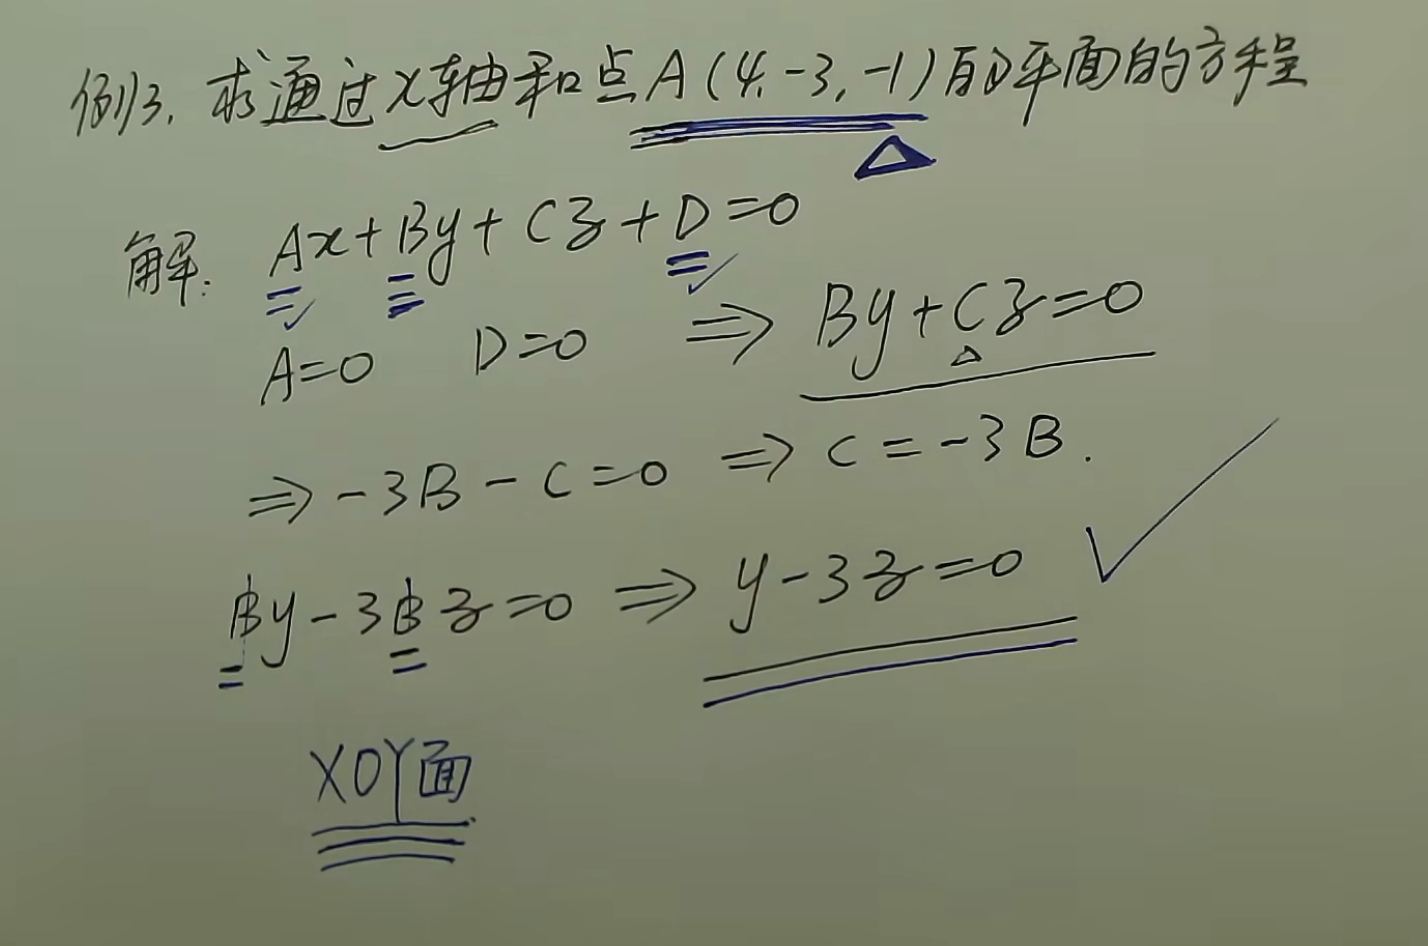 例3. 求通过x轴和点A(4,-3,-1)的平面的方程
解: Ax+By+Cz+D=0
A=0 D=0 ⇒ By+Cz=0
⇒ -3B-C=0 ⇒ C=-3B.
By-3Bz=0 ⇒ y-3z=0
XOY面